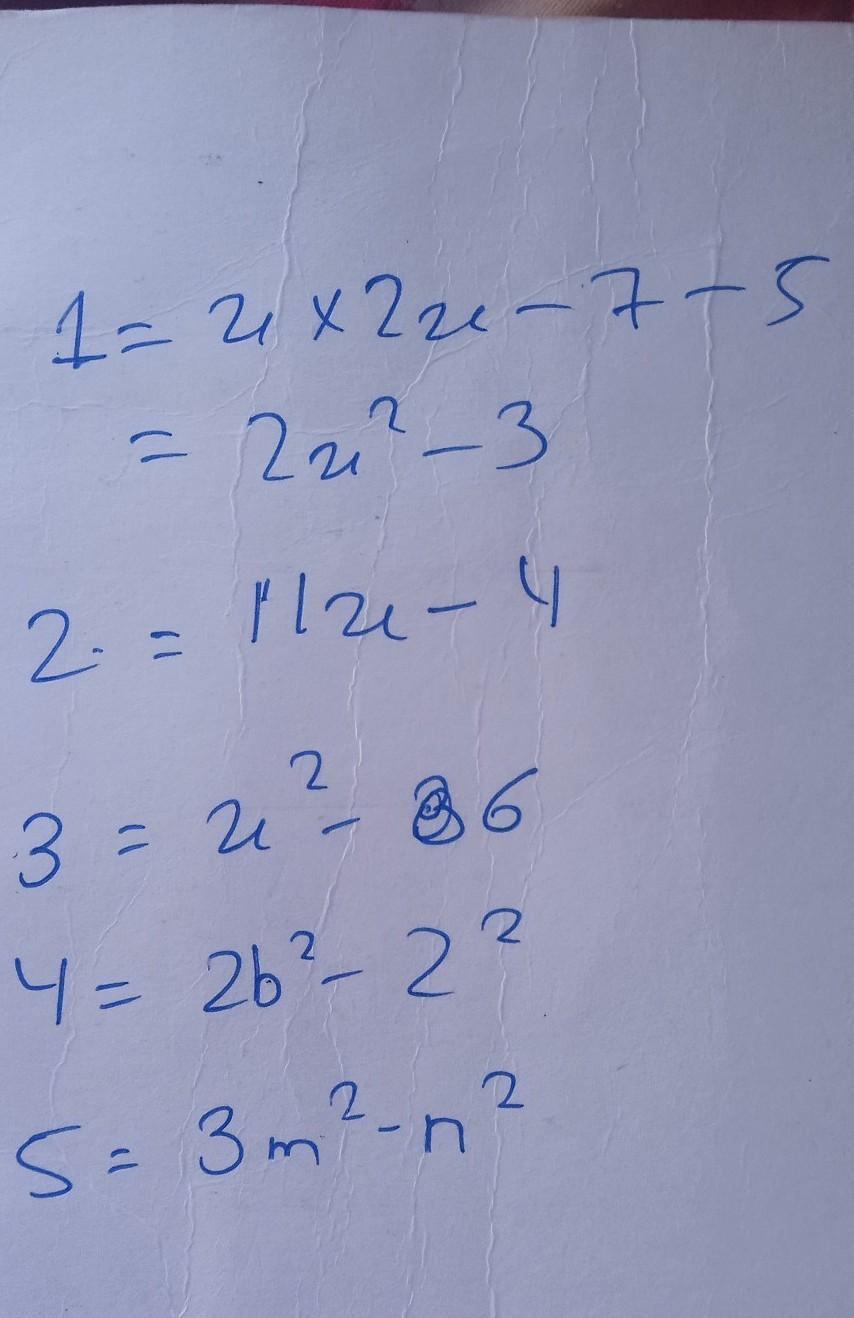 1 = x × 2x - 7 - 5
= 2x² - 3
2. = 11x - 4
3 = x² - 6
4 = 2b² - 2²
5 = 3m² - n²